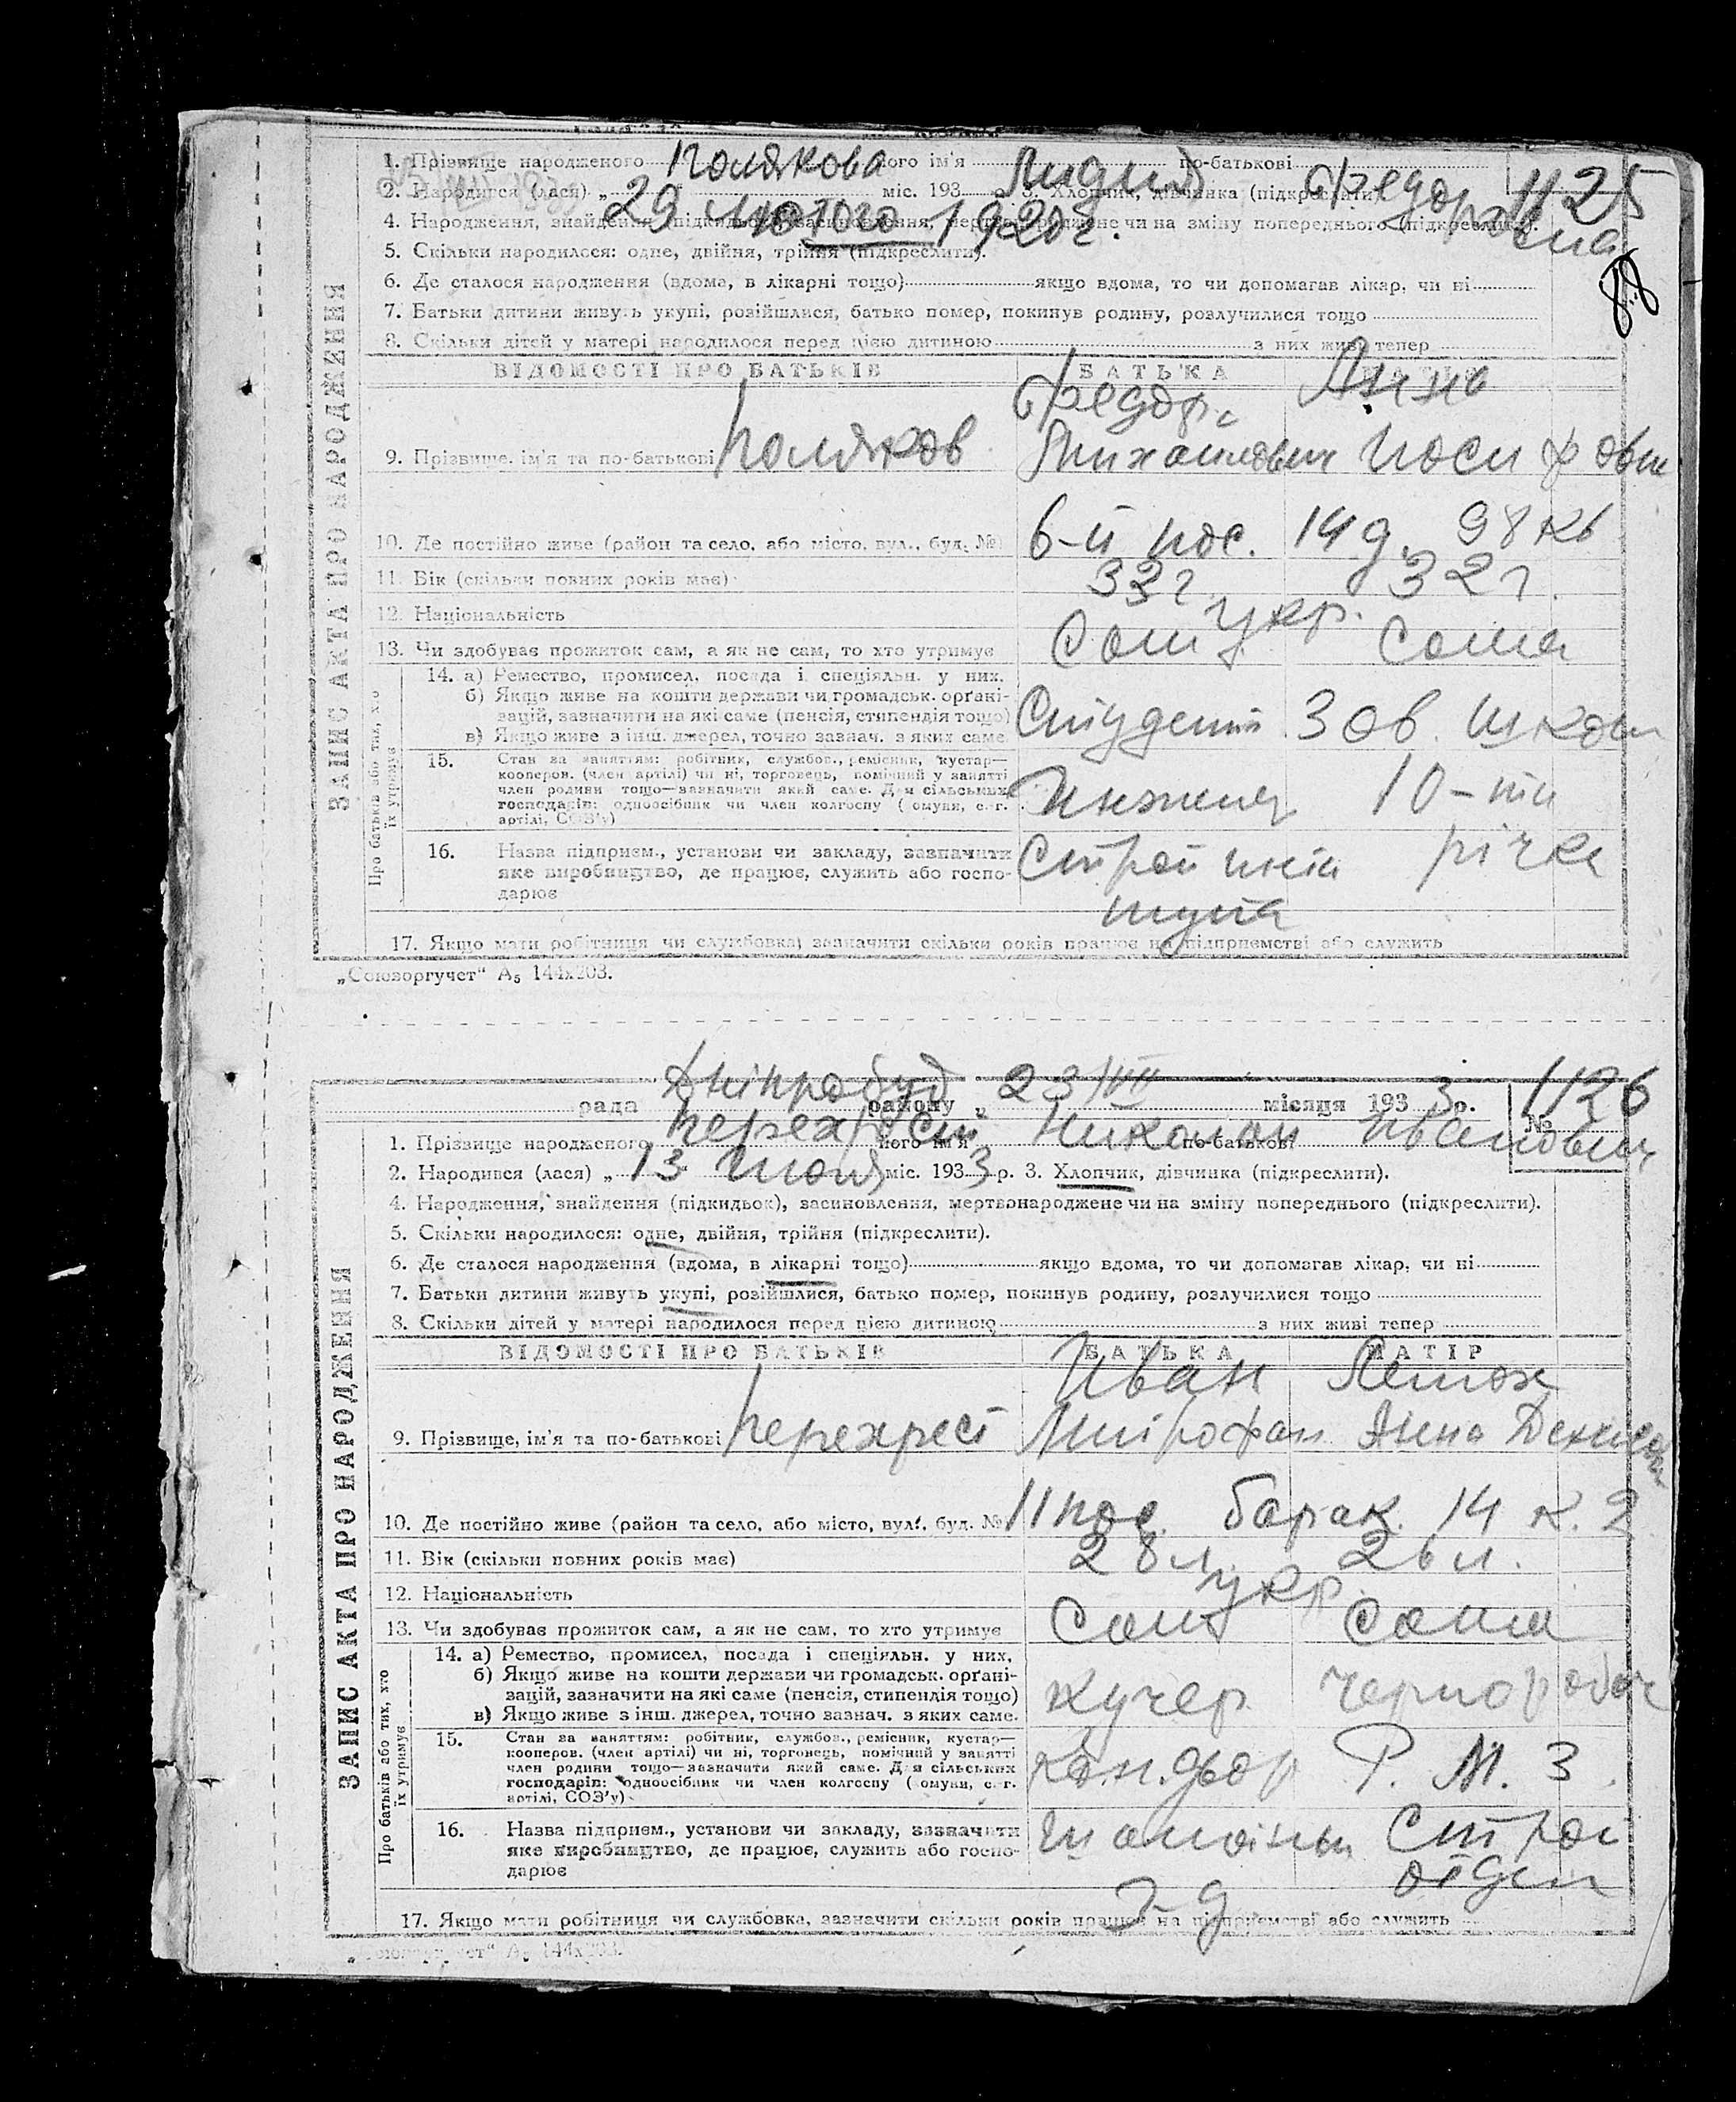 1. Прізвище народженого Полякова його ім'я Лидия по-батькові Федоровна
№ 1125
2. Народився (лася) „ 29 лютого 1920 г. міс. 193 р. 3. Хлопчик, дівчинка (підкреслити).
4. Народження, знайдення (підкидьок), засиновлення, мертвонароджене чи на зміну попереднього (підкреслити).
5. Скільки народилося: одне, двійня, трійня (підкреслити).
88
6. Де сталося народження (вдома, в лікарні тощо) якщо вдома, то чи допомагав лікар, чи ні
7. Батьки дитини живуть укупі, розійшлися, батько помер, покинув родину, розлучилися тощо
8. Скільки дітей у матері народилося перед цією дитиною з них живі тепер
ЗАПИС АКТА ПРО НАРОДЖЕННЯ
ВІДОМОСТІ ПРО БАТЬКІВ БАТЬКА
Федор Анна
9. Прізвище, ім'я та по-батькові Поляков Михайлович Иосифовн
10. Де постійно живе (район та село, або місто, вул., буд. № 6-й пос. 14 д. 98 кв
11. Вік (скільки повних років має) 32 г. 32 г.
12. Національність укр.
13. Чи здобуває прожиток сам, а як не сам, то хто утримує Сам Сама
Про батьків або тих, хто їх утримує
14. а) Ремество, промисел, посада і спеціяльн. у них.
б) Якщо живе на кошти держави чи громадськ. орґані-
зацій, зазначити на які саме (пенсія, стипендія тощо) Студент Зав. школи
в) Якщо живе з інш. джерел, точно зазнач. з яких саме.
15. Стан за заняттям: робітник, службов., ремісник, кустар—
кооперов. (член артілі) чи ні, торговець, помічний у занятті
член родини тощо—зазначити який саме. Для сільських
господарів: одноосібник чи член колгоспу (комуни, с.-г.
артілі, СОЗ'у) 10-ти
16. Назва підприєм., установи чи закладу, зазначити Строй инсти річка
яке виробництво, де працює, служить або госпо-
дарює тута
17. Якщо мати робітниця чи службовка, зазначити скільки років працює на підприємстві або служить
„Союзоргучет“ А5 144х203.
рада Дніпробуд району „ 23/VII місяця 1933 р. № 1126
1. Прізвище народженого Перехрест його ім'я Николай по-батькові Иванович
2. Народився (лася) „ 13 июля міс. 1933 р. 3. Хлопчик, дівчинка (підкреслити).
4. Народження, знайдення (підкидьок), засиновлення, мертвонароджене чи на зміну попереднього (підкреслити).
5. Скільки народилося: одне, двійня, трійня (підкреслити).
6. Де сталося народження (вдома, в лікарні тощо) якщо вдома, то чи допомагав лікар, чи ні
7. Батьки дитини живуть укупі, розійшлися, батько помер, покинув родину, розлучилися тощо
8. Скільки дітей у матері народилося перед цією дитиною з них живі тепер
ЗАПИС АКТА ПРО НАРОДЖЕННЯ
ВІДОМОСТІ ПРО БАТЬКІВ БАТЬКА МАТІР
Иван
9. Прізвище, ім'я та по-батькові Перехрест Митрофан Анна
10. Де постійно живе (район та село, або місто, вул., буд. № 11 пос. барак 14 к. 2
11. Вік (скільки повних років має) 28 л. 26 л.
12. Національність укр.
13. Чи здобуває прожиток сам, а як не сам, то хто утримує Сам Сама
Про батьків або тих, хто їх утримує
14. а) Ремество, промисел, посада і спеціяльн. у них.
б) Якщо живе на кошти держави чи громадськ. орґані-
зацій, зазначити на які саме (пенсія, стипендія тощо) кучер чернороboч
в) Якщо живе з інш. джерел, точно зазнач. з яких саме.
15. Стан за заняттям: робітник, службов., ремісник, кустар—
кооперов. (член артілі) чи ні, торговець, помічний у занятті
член родини тощо—зазначити який саме. Для сільських кон. двор Р. М. З.
господарів: одноосібник чи член колгоспу (комуни, с.-г.
артілі, СОЗ'у)
16. Назва підприєм., установи чи закладу, зазначити Шамотный Строй
яке виробництво, де працює, служить або госпо-
дарює з-д отдел
17. Якщо мати робітниця чи службовка, зазначити скільки років працює на підприємстві або служить
„Союзоргучет“ А5 144х203.